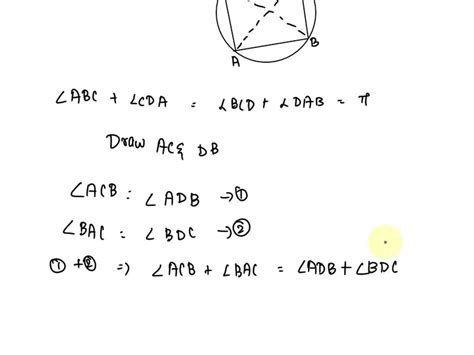 A B
∠ABC + ∠CDA = ∠BCD + ∠DAB = π
Draw AC & DB
∠ACB = ∠ADB → ①
∠BAC = ∠BDC → ②
① + ② ⇒ ∠ACB + ∠BAC = ∠ADB + ∠BDC